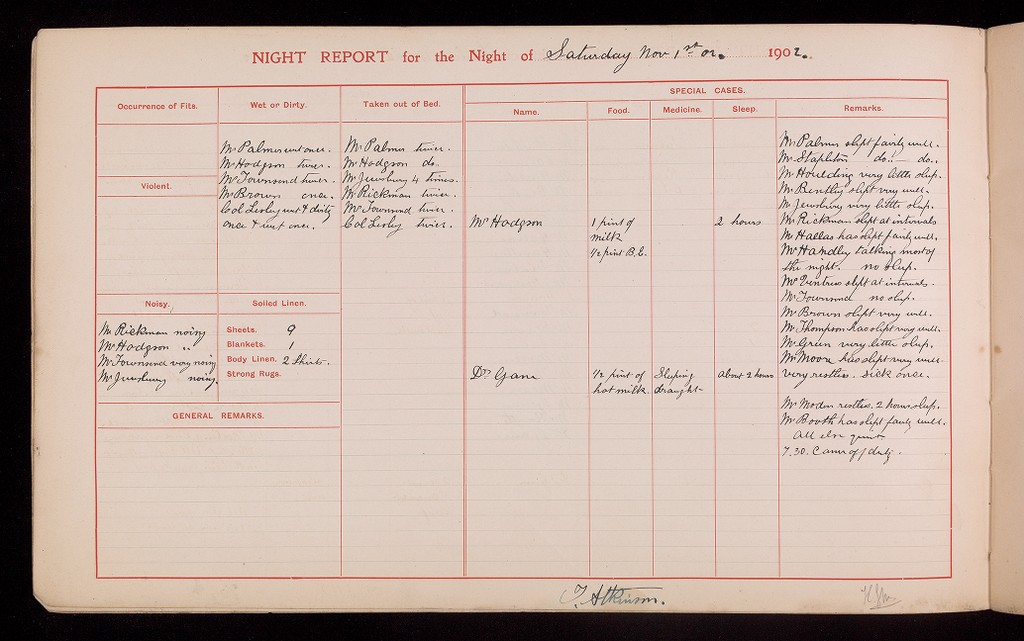 NIGHT REPORT for the Night of Saturday Nov 1st 02. 1902.
Occurrence of Fits.
Wet or Dirty.
Taken out of Bed.
SPECIAL CASES.
Name.
Food.
Medicine.
Sleep.
Remarks.
Mr Palmer wet once.
Mr Hodgson twice.
Mr Townsend twice.
Mr Brown once.
Col Lesley wet & dirty
once & wet once.
Mr Palmer twice.
Mr Hodgson do.
Mr Jewsbury 4 times.
Mr Rickman twice.
Mr Townsend twice.
Col Lesley twice.
Violent.
Noisy.
Mr Rickman noisy
Mr Hodgson "
Mr Townsend very noisy
Mr Jewsbury noisy.
Soiled Linen.
Sheets. 9
Blankets. 1
Body Linen. 2 Shirts.
Strong Rugs.
GENERAL REMARKS.
Mr Hodgson
1 pint of
milk
1/2 pint B.E.
2 hours
Dr Gane
1/2 pint of
hot milk
Sleeping
draught
about 2 hours
Mr Palmer slept fairly well.
Mr Stapleton do. — do.
Mr Houlding very little sleep.
Mr Bently slept very well.
Mr Jewsbury very little sleep.
Mr Rickman slept at intervals
Mr Hallas has slept fairly well.
Mr Handley talking most of
the night. no sleep.
Mr Ventris slept at intervals.
Mr Townsend no sleep.
Mr Brown slept very well.
Mr Thompson has slept very well.
Mr Green very little sleep.
Mr Moore has slept very well
very restless. sick once.
Mr Moden restless. 2 hours sleep.
Mr Booth has slept fairly well.
All else quiet
7.30. Came off duty.
T. Atkinson.